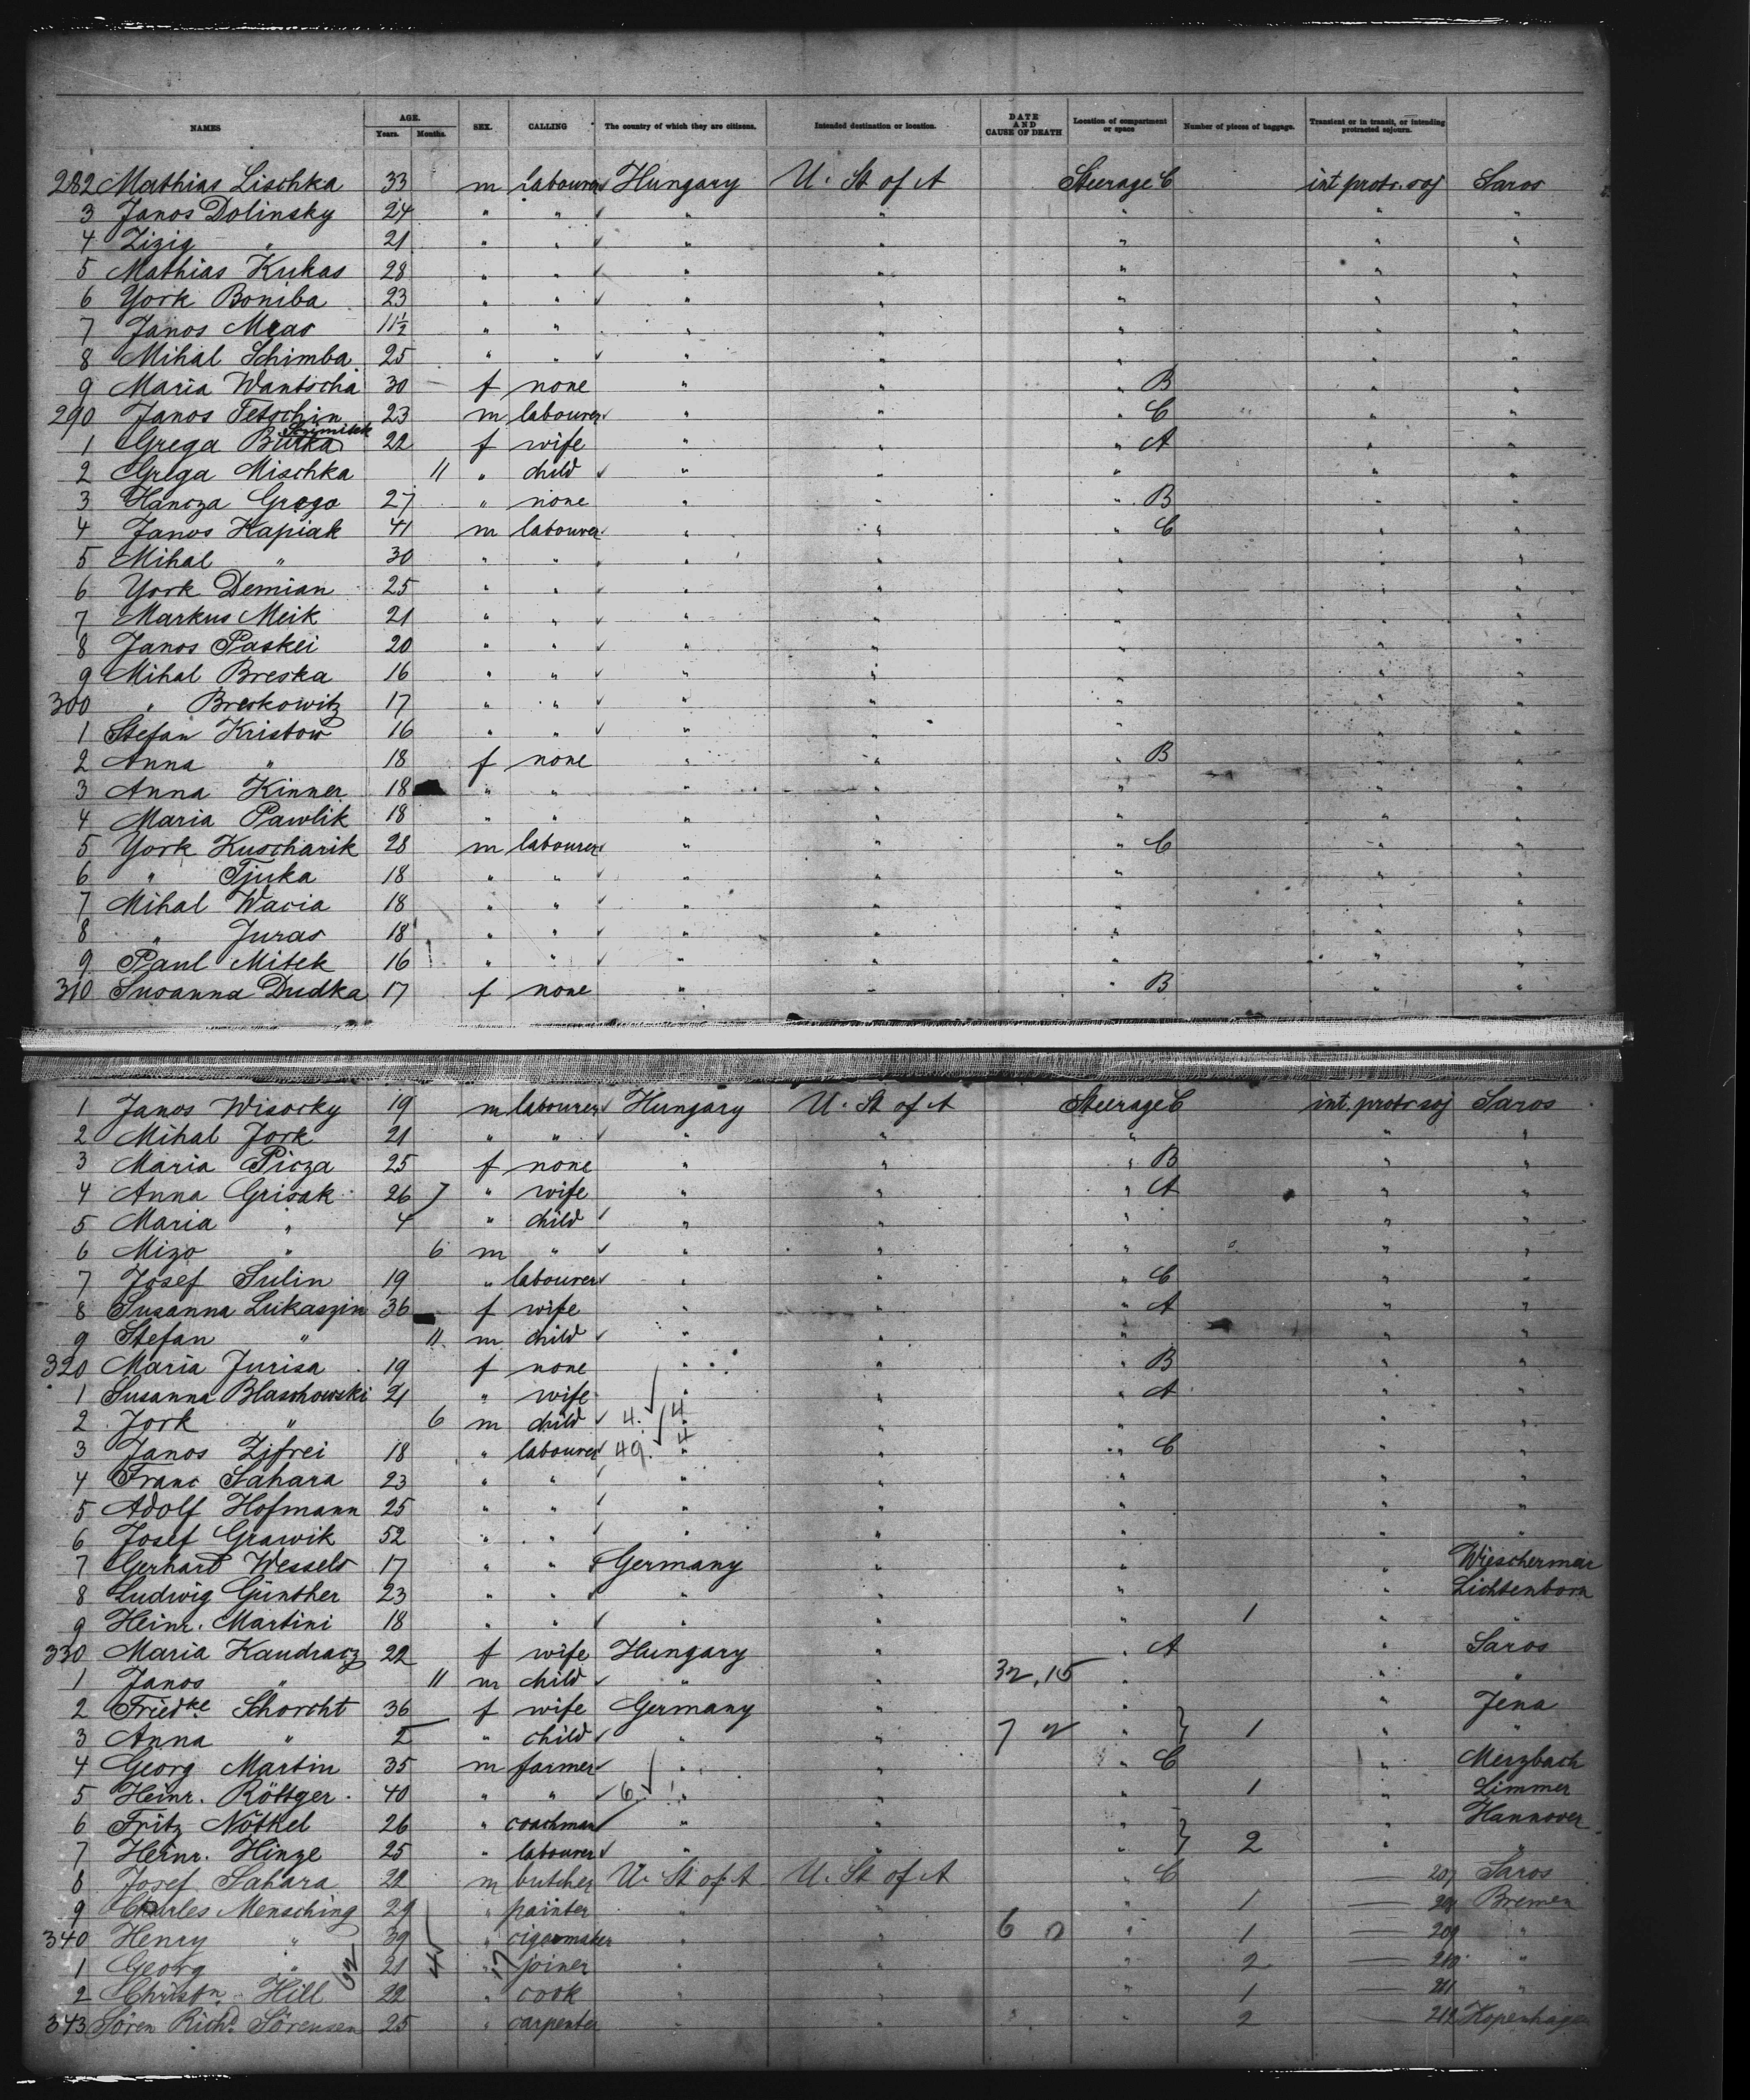 NAMES AGE. Years. Months. SEX. CALLING The country of which they are citizens. Intended destination or location. DATE AND CAUSE OF DEATH Location of compartment or space Number of pieces of baggage. Transient or in transit, or intending protracted sojourn.
282 Mathias Lischka 33 m labourer Hungary U. St of A Steerage C int protr. soj Saros
3 Janos Dolinsky 24 " " " " " " "
4 Zizig " 21 " " " " " " "
5 Mathias Kukas 28 " " " " " " "
6 York Boniba 23 " " " " " " "
7 Janos Mças 11½ " " " " " " "
8 Mihal Schimba 25 " " " " " " "
9 Maria Wantscha 30 f none " " " B " "
290 Janos Tetschin 23 m labourer " " " C " "
1 Grega Butka 22 f wife " " " A " "
2 Grega Mischka 11 " child " " " " "
3 Hancza Grego 27 " none " " " B " "
4 Janos Hapiak 41 m labourer " " " C " "
5 Mihal " 30 " " " " " " "
6 York Demian 25 " " " " " " "
7 Markus Meik 21 " " " " " " "
8 Janos Paskei 20 " " " " " " "
9 Mihal Breska 16 " " " " " " "
300 " Breskowitz 17 " " " " " " "
1 Stefan Kristow 16 " " " " " " "
2 Anna " 18 f none " " " B " "
3 Anna Kinner 18 " " " " " " "
4 Maria Pawlik 18 " " " " " " "
5 York Kuscharik 28 m labourer " " " C " "
6 " Tjuka 18 " " " " " " "
7 Mihal Wacia 18 " " " " " " "
8 " Juras 18 " " " " " " "
9 Paul Mitek 16 " " " " " " "
310 Susanna Dudka 17 f none " " " B " "
1 Janos Wisocky 19 m labourer Hungary U. St of A Steerage C int. protr soj Saros
2 Mihal Jork 21 " " " " " " "
3 Maria Picza 25 f none " " " B " "
4 Anna Grisak 26 " wife " " " A " "
5 Maria " 4 " child " " " " "
6 Mizo " 6 m " " " " " "
7 Josef Sulin 19 " labourer " " " C " "
8 Susanna Lukaszin 36 f wife " " " A " "
9 Stefan " 11 m child " " " " "
320 Maria Jurisa 19 f none " " " B " "
1 Susanna Blaschowski 21 " wife " " " A " "
2 Jork " 6 m child 4. 4 " " " " "
3 Janos Zifrei 18 " labourer 49. 4 " " " C " "
4 Franc Sahara 23 " " " " " " "
5 Adolf Hofmann 25 " " " " " " "
6 Josef Grawik 52 " " " " " " "
7 Gerhard Wessels 17 " " Germany " " " Wieschermeir
8 Ludwig Günther 23 " " " " " " Lichtenborn
9 Heinr. Martini 18 " " " " " 1 " "
330 Maria Kaudracz 22 f wife Hungary " " A " Saros
1 Janos " 11 m child " " 32,15 " " "
2 Friedke Schorcht 36 f wife Germany " " " Jena
3 Anna " 2 " child " " 7 " 1 " "
4 Georg Martin 35 m farmer " " " C " Merzbach
5 Heinr. Röttger 40 " " 6 " " " 1 " Limmer
6 Fritz Nötkel 26 " coachman " " " " Hannover
7 Heinr. Hinze 25 " labourer " " " 2 " "
8 Josef Sahara 22 m butcher U. St of A U. St of A " C 207 Saros
9 Charles Mensching 29 " painter " " " 1 208 Bremen
340 Henry " 39 " cigarmaker " " 6 0 " 1 209 "
1 Georg " 21 " joiner " " " 2 210 "
2 Christn Hill 22 " cook " " " 1 211 "
343 Sören Richd Sörensen 25 " carpenter " " " 2 212 Kopenhagen